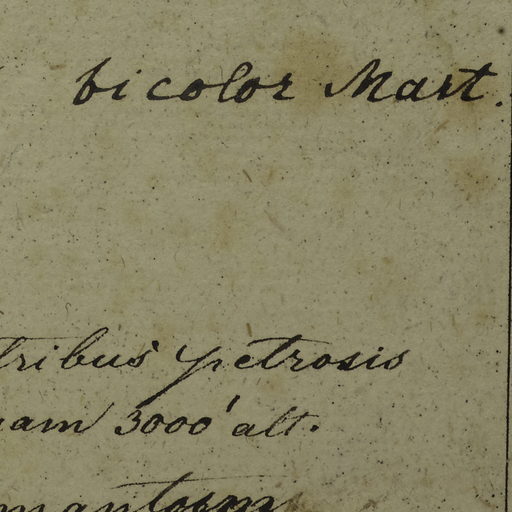 bicolor Mart.
tribus petrosis
am 3000' alt.